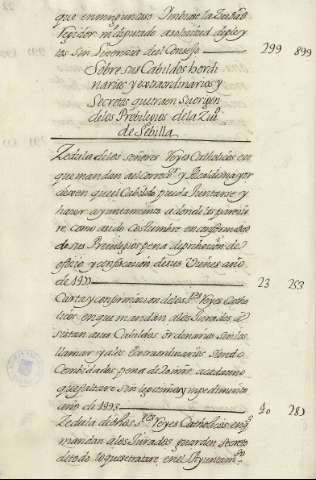 que en ninguna
legidor ni diputado a soliçitud dello y
los sin Licencia del Consejo 299 899
Sobre sus Cabildos hordi
narios y extraordinarios y
Secretos que traen su origen
de los Previlegios de la Ziu.
de Sebilla
Zedula de los señores Reyes Catholicos en
que mandan al Correg.r y Alcalde mayor
dexen que el Cabildo pueda Juntarse y
hazer ayuntamiento adonde les parecie
re como a sido costumbre en conformidad
de sus Previlegios pena de pribacion de
oficio y confiscacion de sus Vienes año
de 23 253
Carta y confirmacion de los Reyes Catho
licos en que mandan a los Jurados
a sus Cabildos ordinarios sin los
llamar y a los Extraordinarios siendo
Combidados pena de
que faltare sin lexitimo impedimento
año de 1495 40 281
Zedula de dhos S.res Reyes Catholicos en q.
mandan a los Jurados guarden secreto
de todo lo que se tratare en el Ayuntam.to